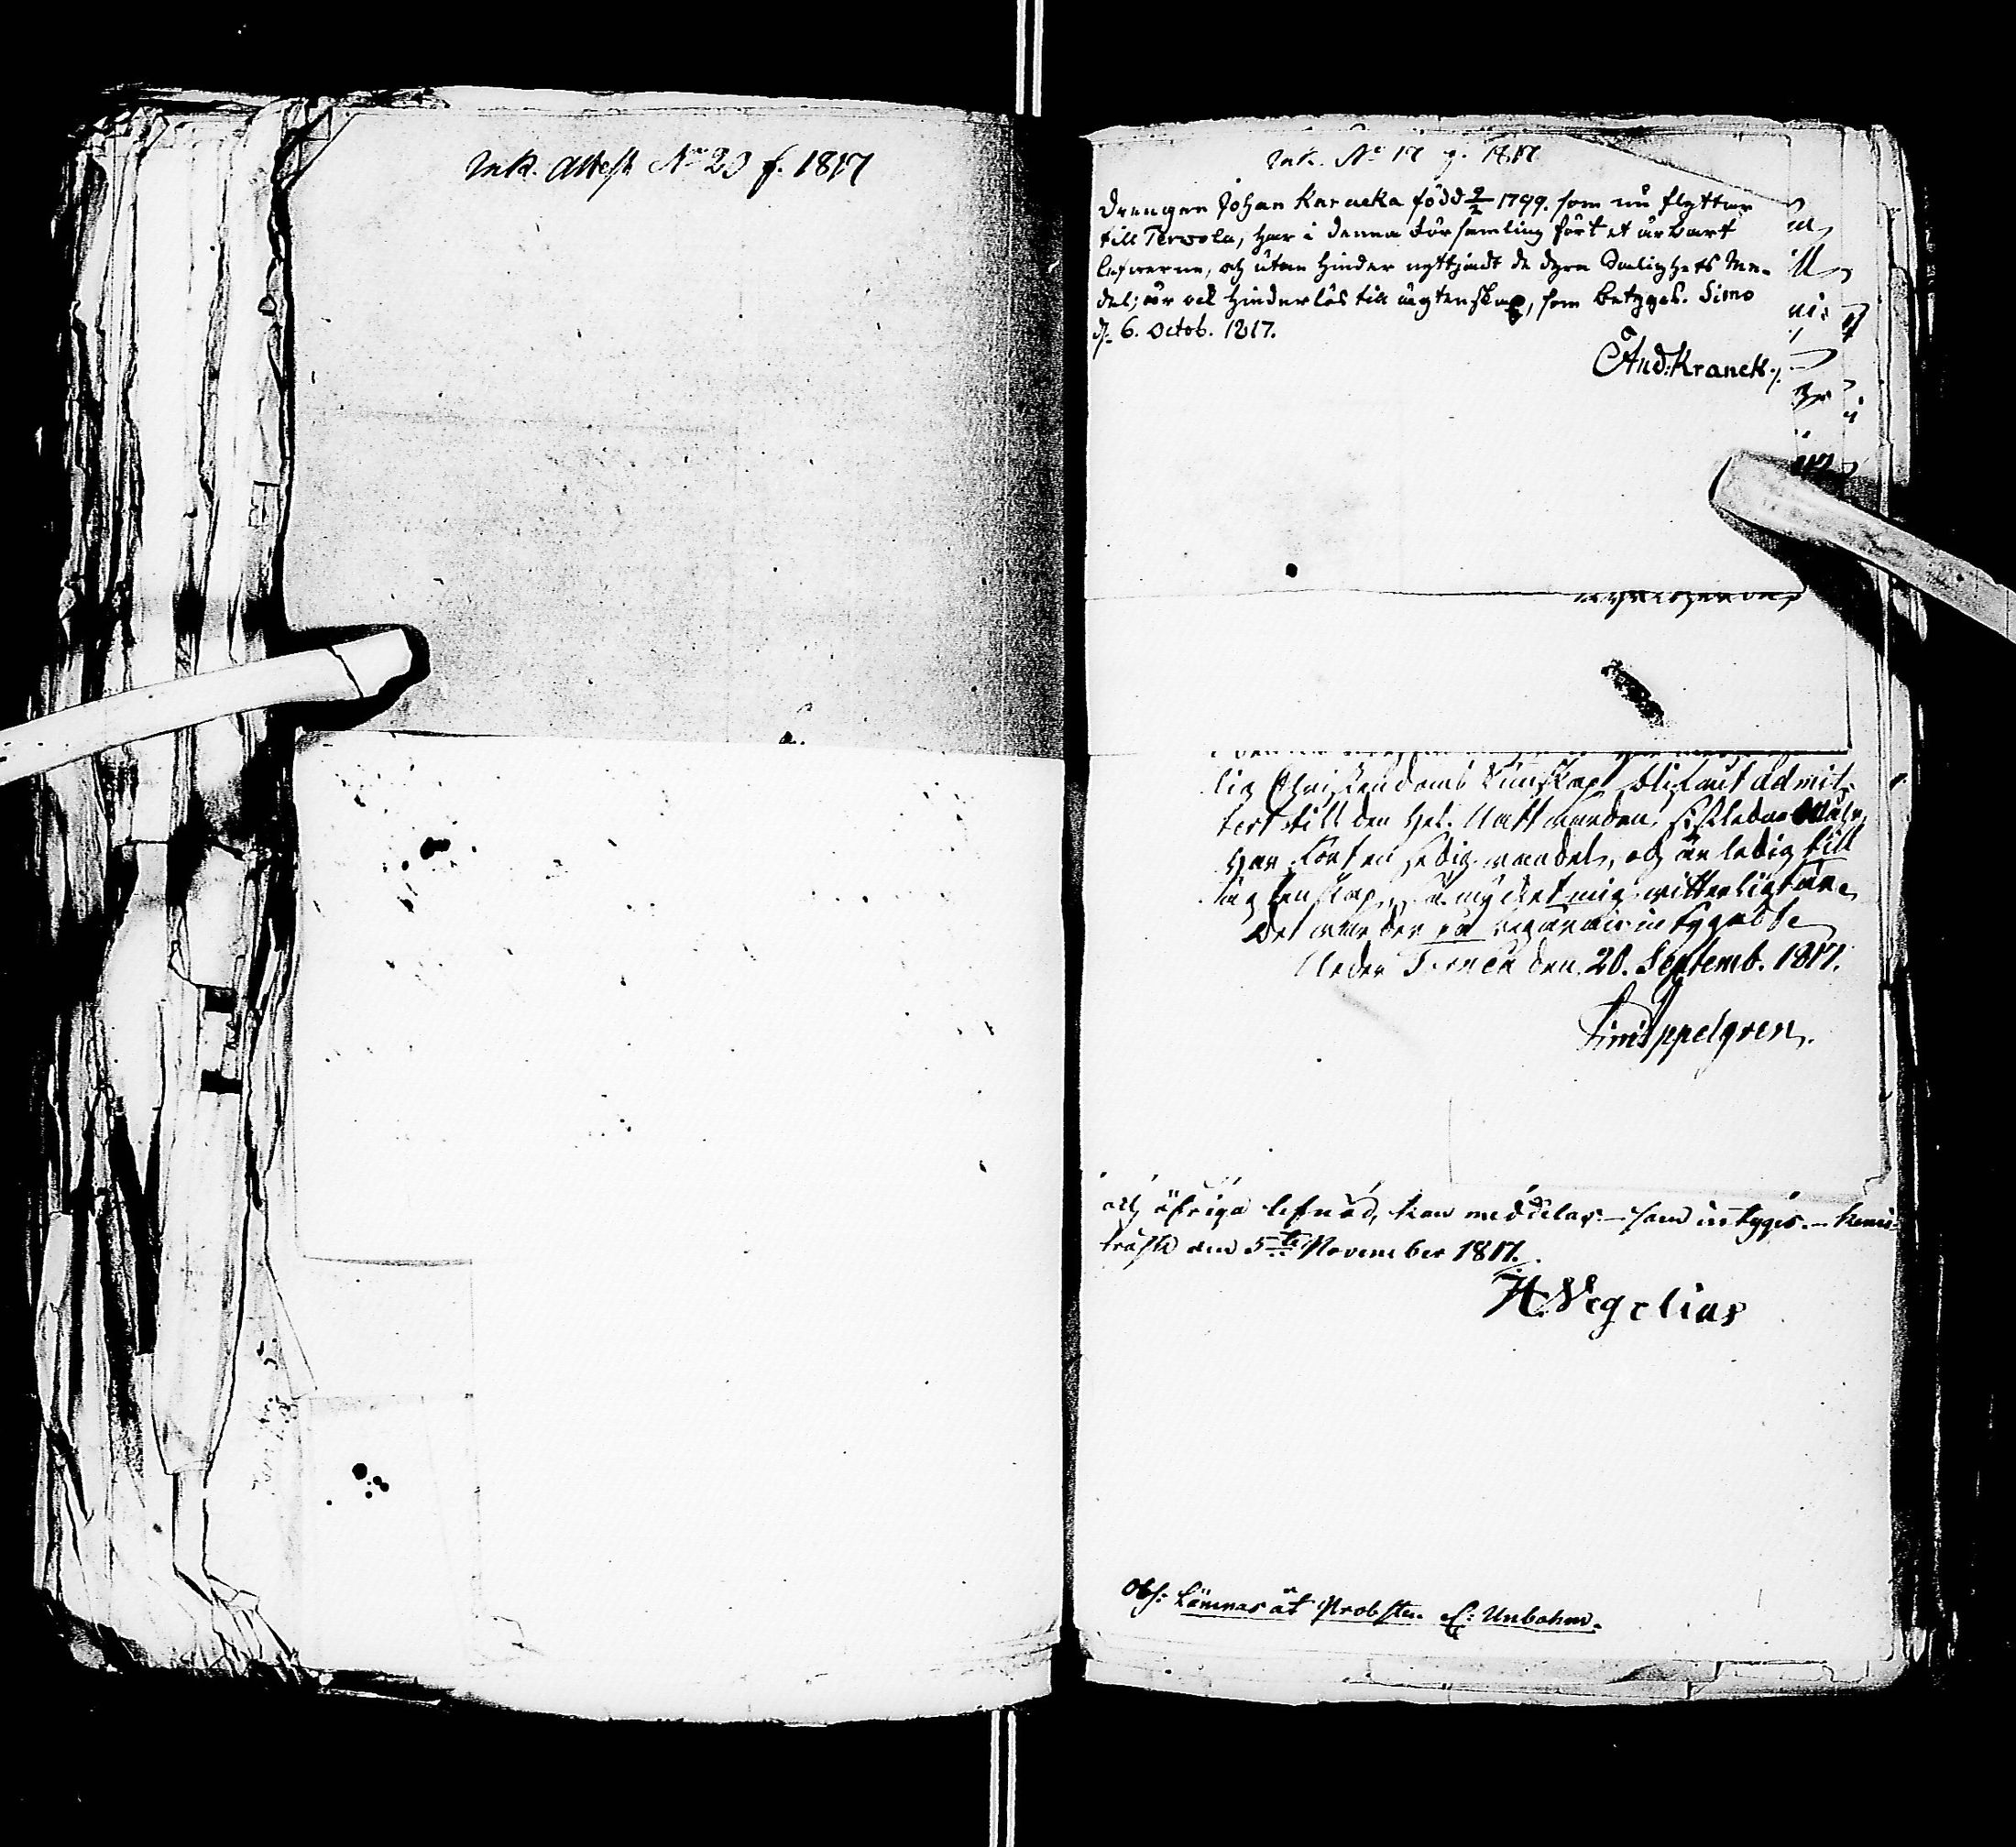 Ink. Attest No 23 f. 1817
Ink. No 17 f. 1817
Drengen Johan Karucka född 2/2 1799. som nu flyttar
till Terwola, har i denna Församling fört et ärbart
lefwerne, och utan hinder nyttjadt de dyra Salighets Me-
del; är ock hinderlös till ägtenskap, som betyges. Simo
d. 6. Octob. 1817.
And: Kranck
lig Christendoms Kunskap blifwit admit-
tert till den Hel. Nattwarden, sistledne
har fört en sedig wandel, och är ledig till
ägtenskap, så mycket mig witterligt är.
Det warder på begäran intygadt
Neder Torneå den 20. Septemb. 1817.
Appelgren.
och öfriga lefnad, kan meddelas - som intygas. - Kemi
träsk den 5te November 1817.
H. Wegelius
Obs: Lämnas åt Probsten Unbohm.